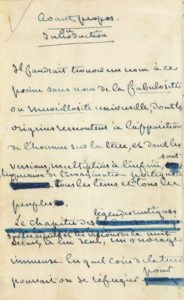 Avant propos.
ou
Introduction
Il faudrait trouver un nom à ce
poème dans nom de la fabulosité
ou merveillosité universelle, dont les
origines remontent à l'apparition
de l'homme sur la terre, et dont les
versions, multipliées à l'infini, sont
l'expression de l'imagination poétique
de tous les tems et tous les
peuples.
Le chapitre des légendes rustiques
sur les esprits et les visions de la nuit
serait, à lui seul, un ouvrage
immense. En quel coin de la terre
pourrait-on se réfugier pour